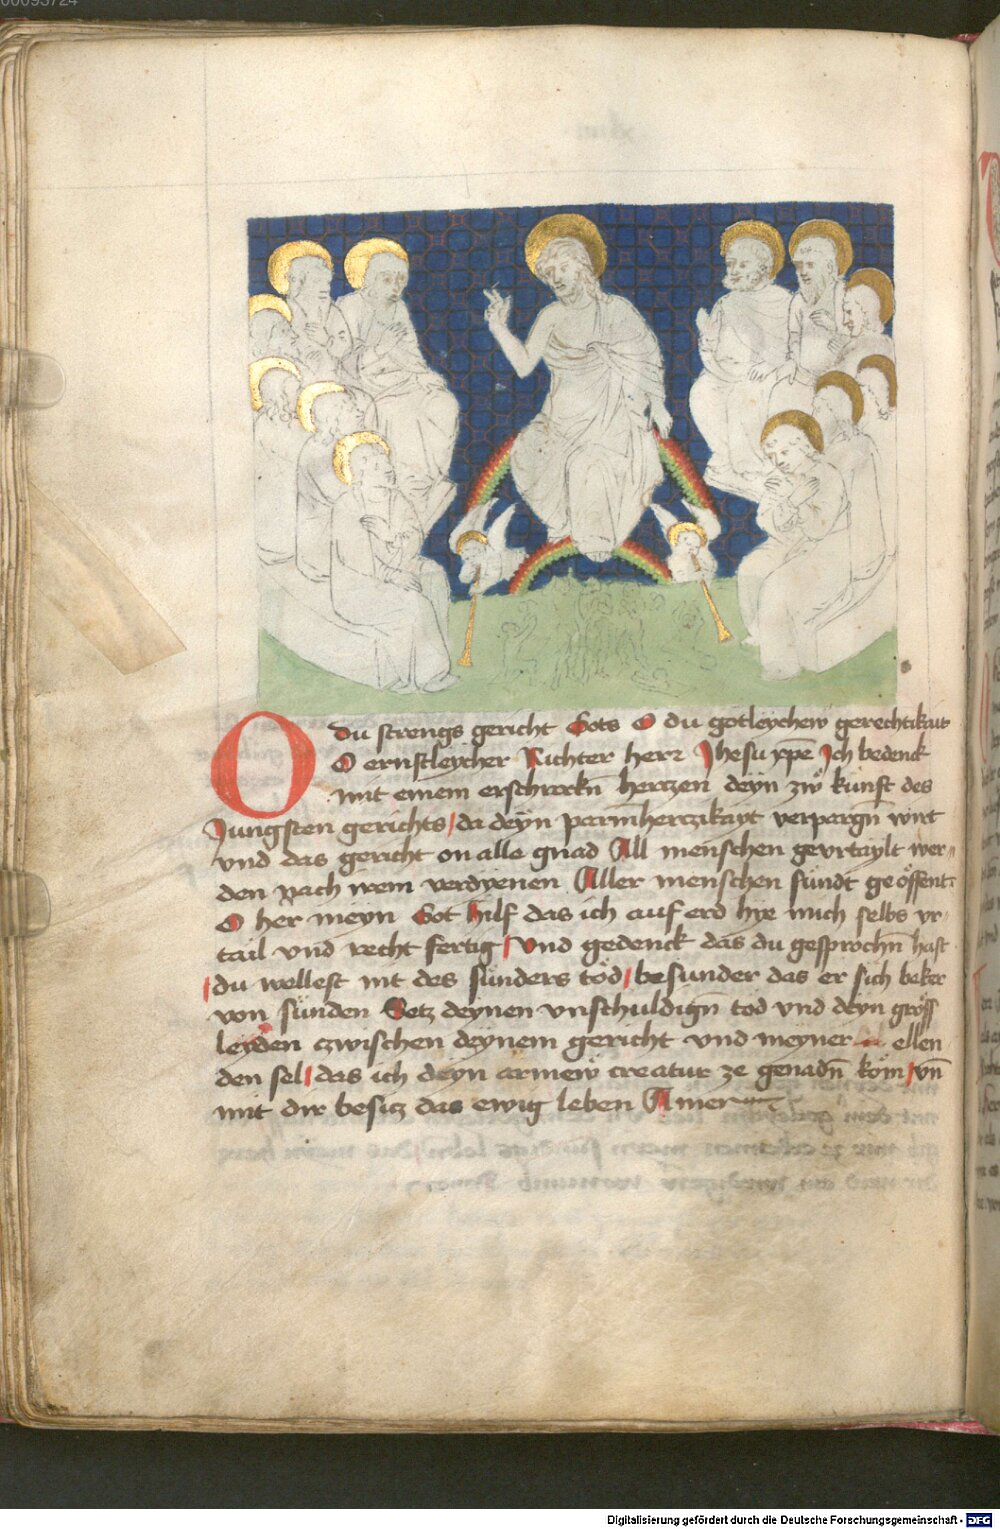 00093724
O du strengs gericht Gots O du gotleychew gerechtikait
O ernstleycher Richter herr Jhesu xp̄e Ich bedenck
mit einem erschrockn̄ hertzen deyn zẘ kunft des
Jungsten gerichts / da deyn parmherczikayt verpargn̄ wirt
vnd das gericht on alle gnad All menschen gevrtaylt wer〟
den nach irem verdyenen Aller menschen sündt geöffent
O her meyn Got hilf das ich auf erd hye mich selbs vr〟
tail vnd recht fertig / Vnd gedenck das du gesprochn̄ hast
/ du wellest nit des sünders töd / besunder das er sich beker
von sünden Setz deynen vnschuldign̄ tod vnd deyn gröss
leyden czwischen deynem gericht vnd meyner ellen
den sel / das ich deyn armew creatur ze genadn̄ köm / vn̄
mit dir besicz das ewig leben Amen
Digitalisierung gefördert durch die Deutsche Forschungsgemeinschaft - DFG